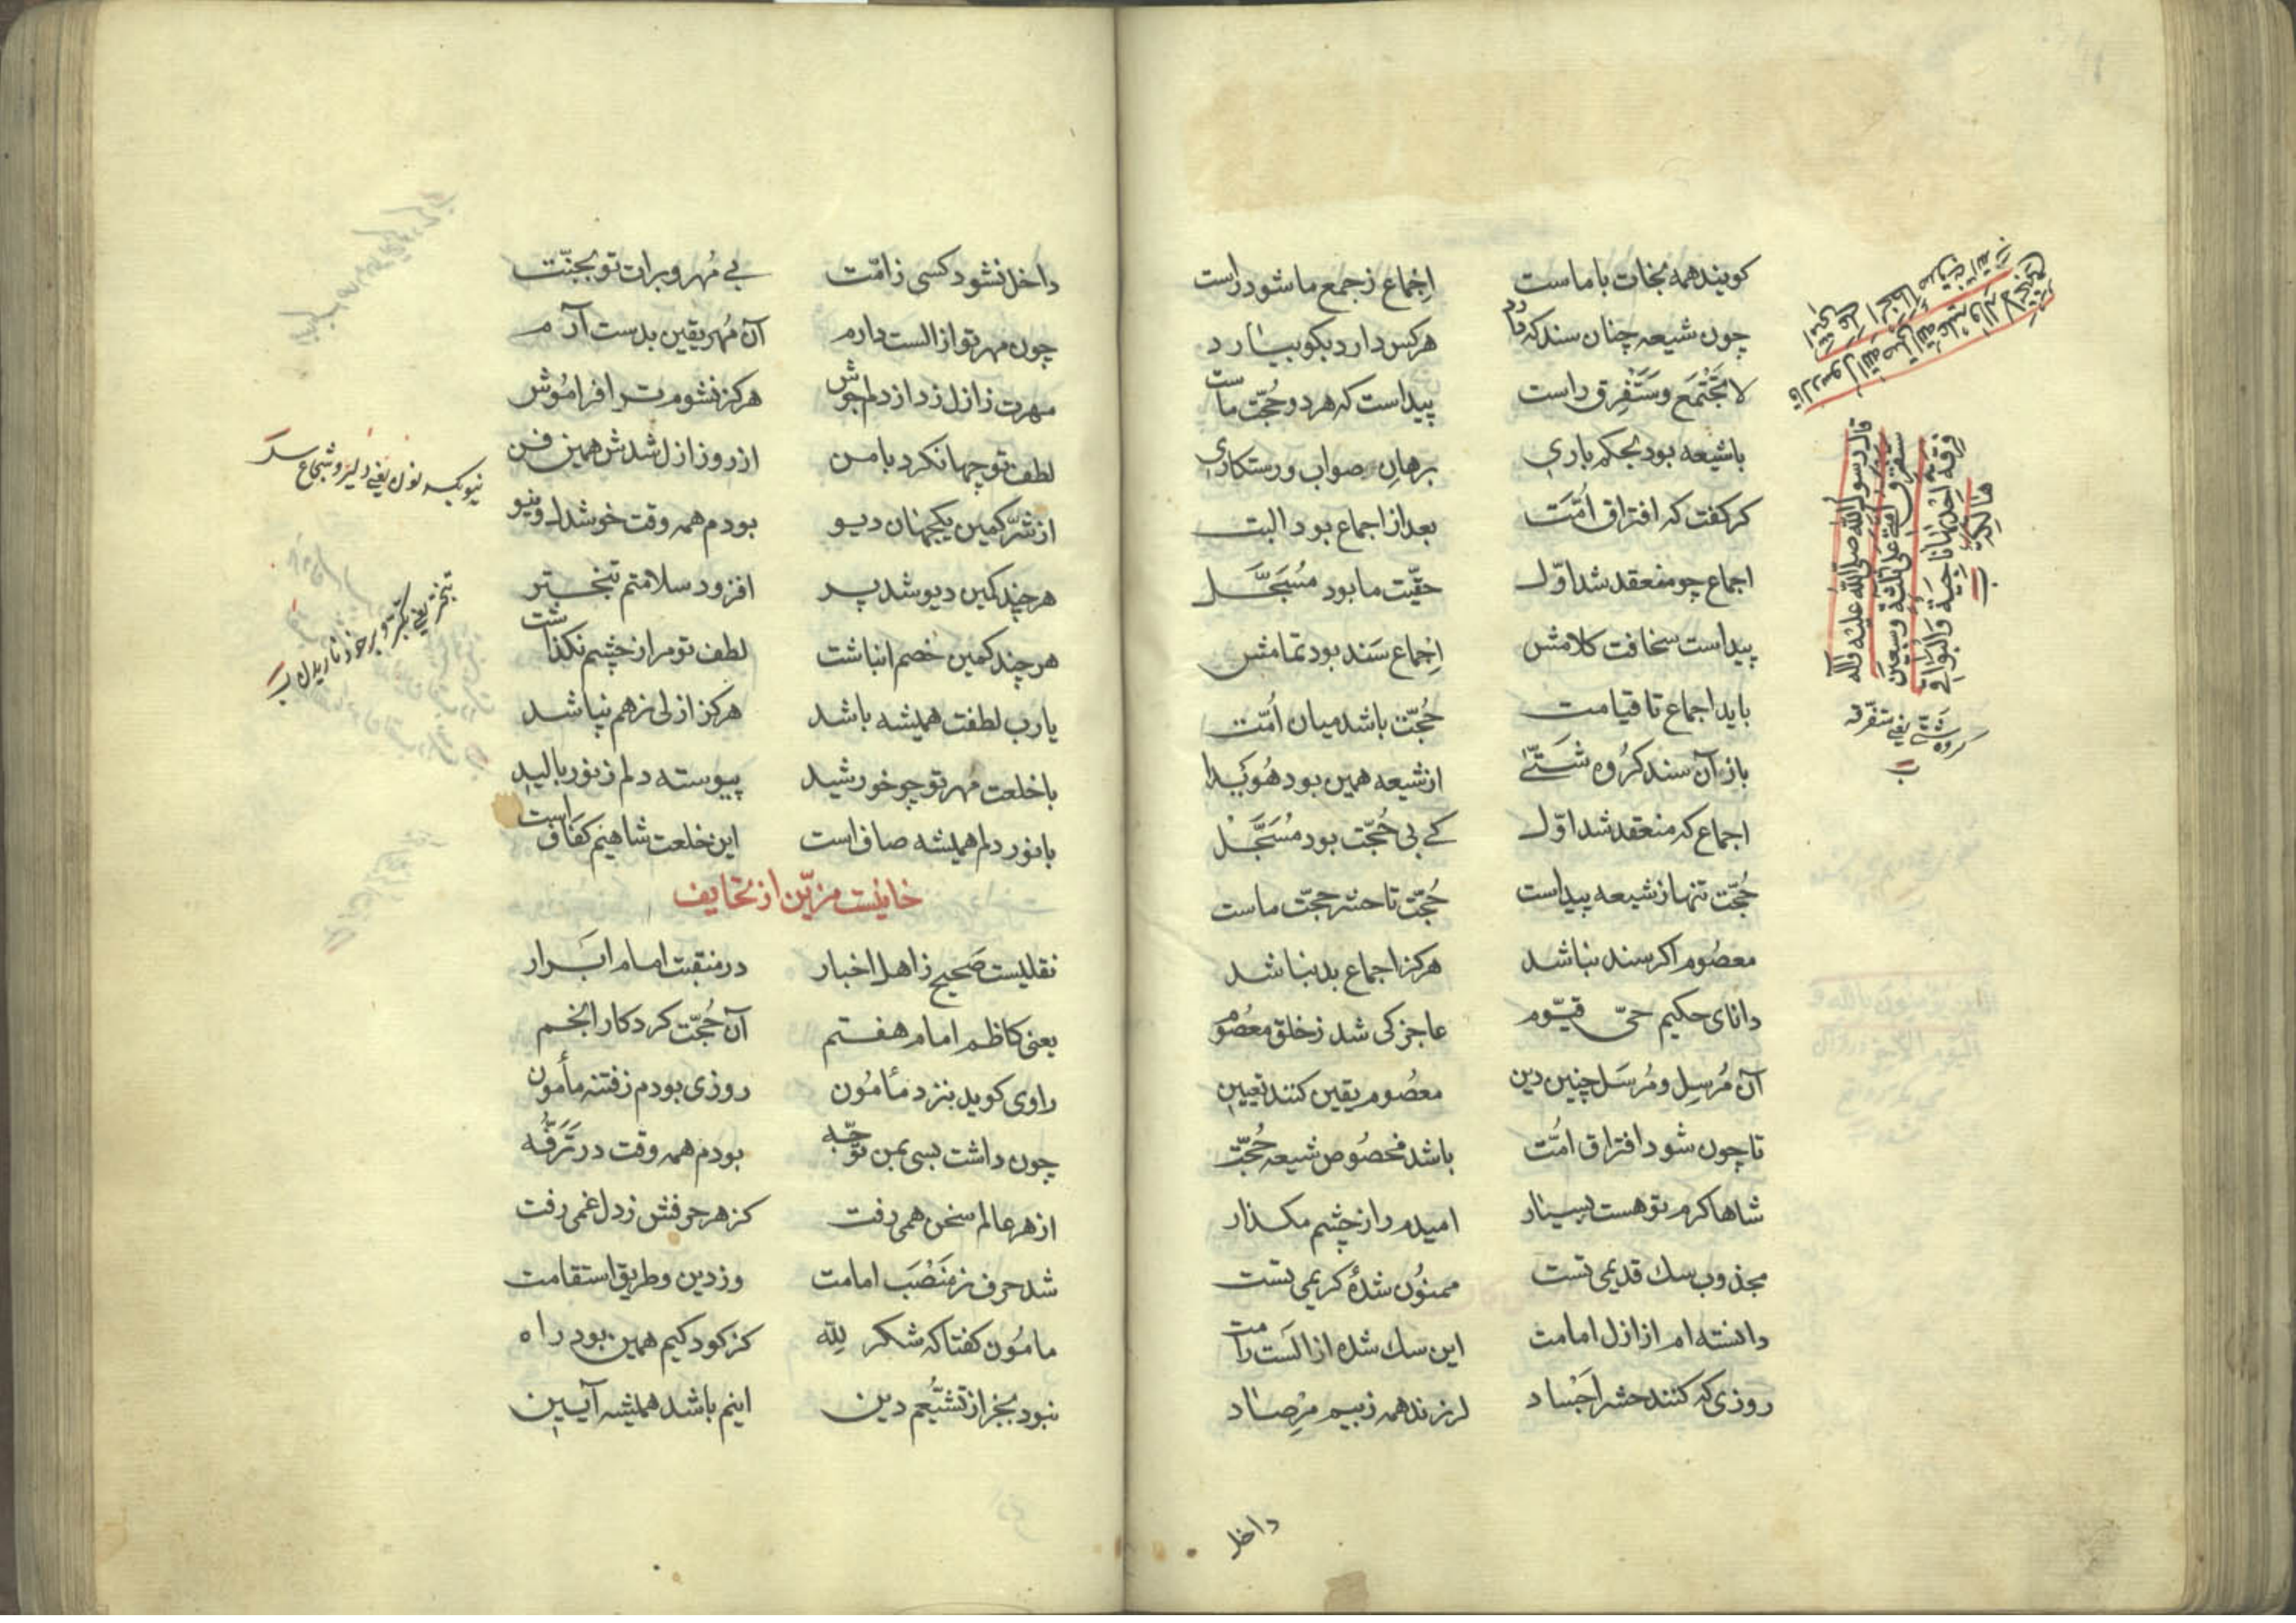 کویند همه نجات با ماست اِجماع ز جمع ما شود راست
چون شیعه چنان سند که دارد هرکس دارد بکو بیارد
لا تجتمع و ستفرق راست پیداست که هر دو حُجّت ماست
با شیعه بود بحکم باری برهان صواب و رستکاری
کر کفت که افتراق اُمّت بعد از اجماع بود البت
اجماع چو منعقد شد اوّل حقّیت ما بود مُسَجَّل
پیداست سخافت کلامش اِجماع سَند بود تمامش
باید اجماع تا قیامت حُجّت باشد میان اُمّت
باز آن سند کرُوه شَتّی از شیعه همین بود هُویدا
اجماع که منعقد شد اوّل کے بی حُجّت بود مُسَجَّل
حُجّت تنها ز شیعه پیداست حُجّت تا حشر حجّت ماست
معصُوم اکر سند نباشد هرکز اجماع بد نباشد
دانای حکیم حیّ قیّوم عاجز کی شد ز خلق معصُوم
آن مُرسِل و مُرسَل چنین دین معصُوم یقین کنند تعیین
تا چون شود افتراق امُّت باشد مخصُوص شیعه حُجّت
شاها کرم تو هست بسیار امیدم را ز چشم مکذار
مجذوب سک قدیمی تست ممنوُن شدهٔ کریمی تست
دانسته ام از ازل امامت این سک شده از اَلَست رامت
روزی که کنند حشر اَجْساد لرزند همه ز بیم مِرْصاد
قال رسول الله صلّی الله علیه وآله
ستفرق امتی علی ثلثة وسبعین
فرقة احدیها ناجیة والبواقی
هالکة
کروه شتّی یعنی متفرقه
داخل
داخل نشود کسی ز امّت بے مُهر و برات تو بجنّت
چون مهر تو از الست دارم آن مُهر یقین بدست آرم
مهرت ز ازل زد از دلم جوش هرکز نشوم ترا فرامُوش
لطف تو چها نکرد با من از روز ازل شدش همین فن
از شرّ کمین یکجهان دیو بودم همه وقت خوشدل و نیو
هرچند کمین دیو شد پر افزود سلامتم تبختر
هرچند کمین خصم انباشت لطف تو مرا ز چشم نکذاشت
یارب لطفت همیشه باشد هرکز ازلی ز هم نپاشد
با خلعت مهر تو چو خورشید پیوسته دلم ز نور بالید
با نور دلم همیشه صاف است این خلعت شاهیم کفاف است
نیو بکسر نون یعنی دلیر و شجاع
خانیست مزیّن از تحایف
نقلیست صَحیح ز اهل اخبار در منقبت امام ابَرار
یعنی کاظم امام هفتم آن حُجّت کردکار انجم
راوی کوید بنزد مأمُون روزی بودم ز فتنه مأمون
چون داشت بسی بمن توجّه بودم همه وقت در تَرَفُّه
از هر عالم سخن همی رفت کز هر حرفش ز دل غمی رفت
شد حرف ز مَنْصَب امامت وز دین و طریق استقامت
مامُون کفتا که شکر للّه کز کودکیم همین بود راه
نبود بجز از تشیُّعم دین اینم باشد همیشه آیین